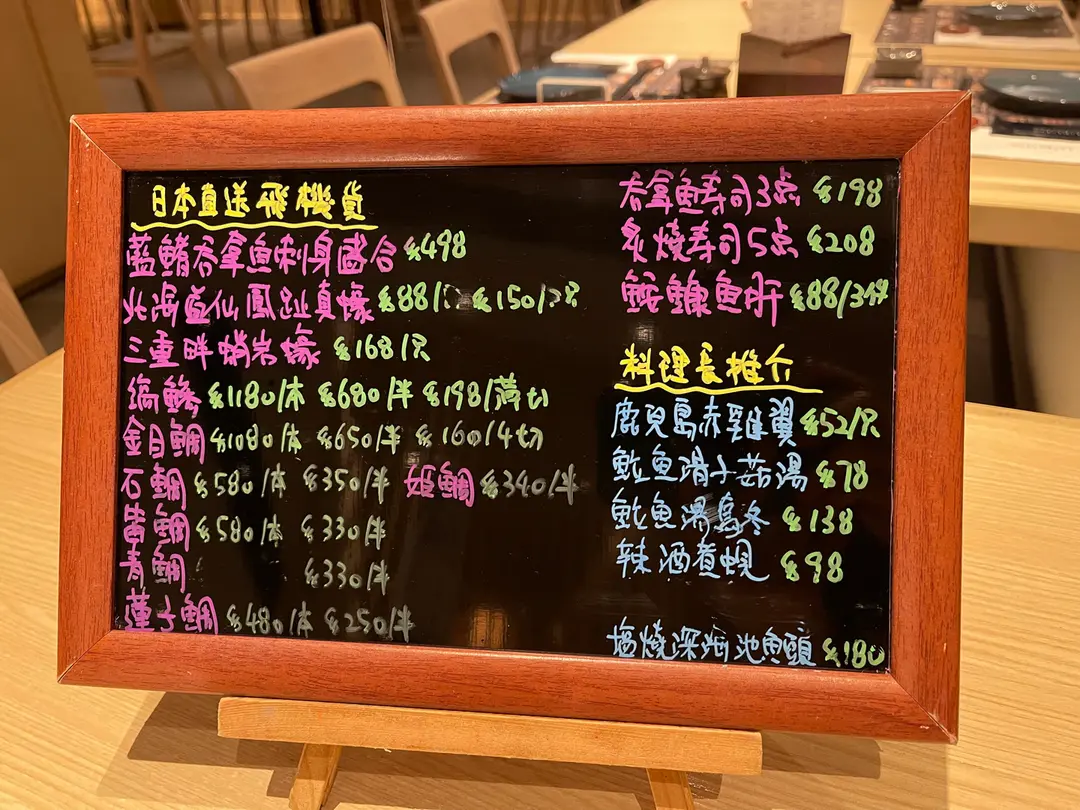 日本直送飛機貨
藍鰭吞拿魚刺身盛合 $498
北海道仙鳳趾真蠔 $88/ $150/只
三重畔蛸岩蠔 $168/只
縞鰺 $1180/本 $680/半 $198/薄切
金目鯛 $1080/本 $650/半 $160/4切
石鯛 $580/本 $350/半 姫鯛 $340/半
鯛 $580/本 $330/半
青鯛 $330/半
蓮子鯛 $480/本 $250/半
吞拿魚寿司3点 $198
炙燒寿司5点 $208
鮟鱇魚肝 $88/3件
料理長推介
鹿兒島赤雞翼 $52/只
魚滑子菇湯 $78
魚湯烏冬 $138
辣酒煮蜆 $98
塩燒深海池魚頭 $180